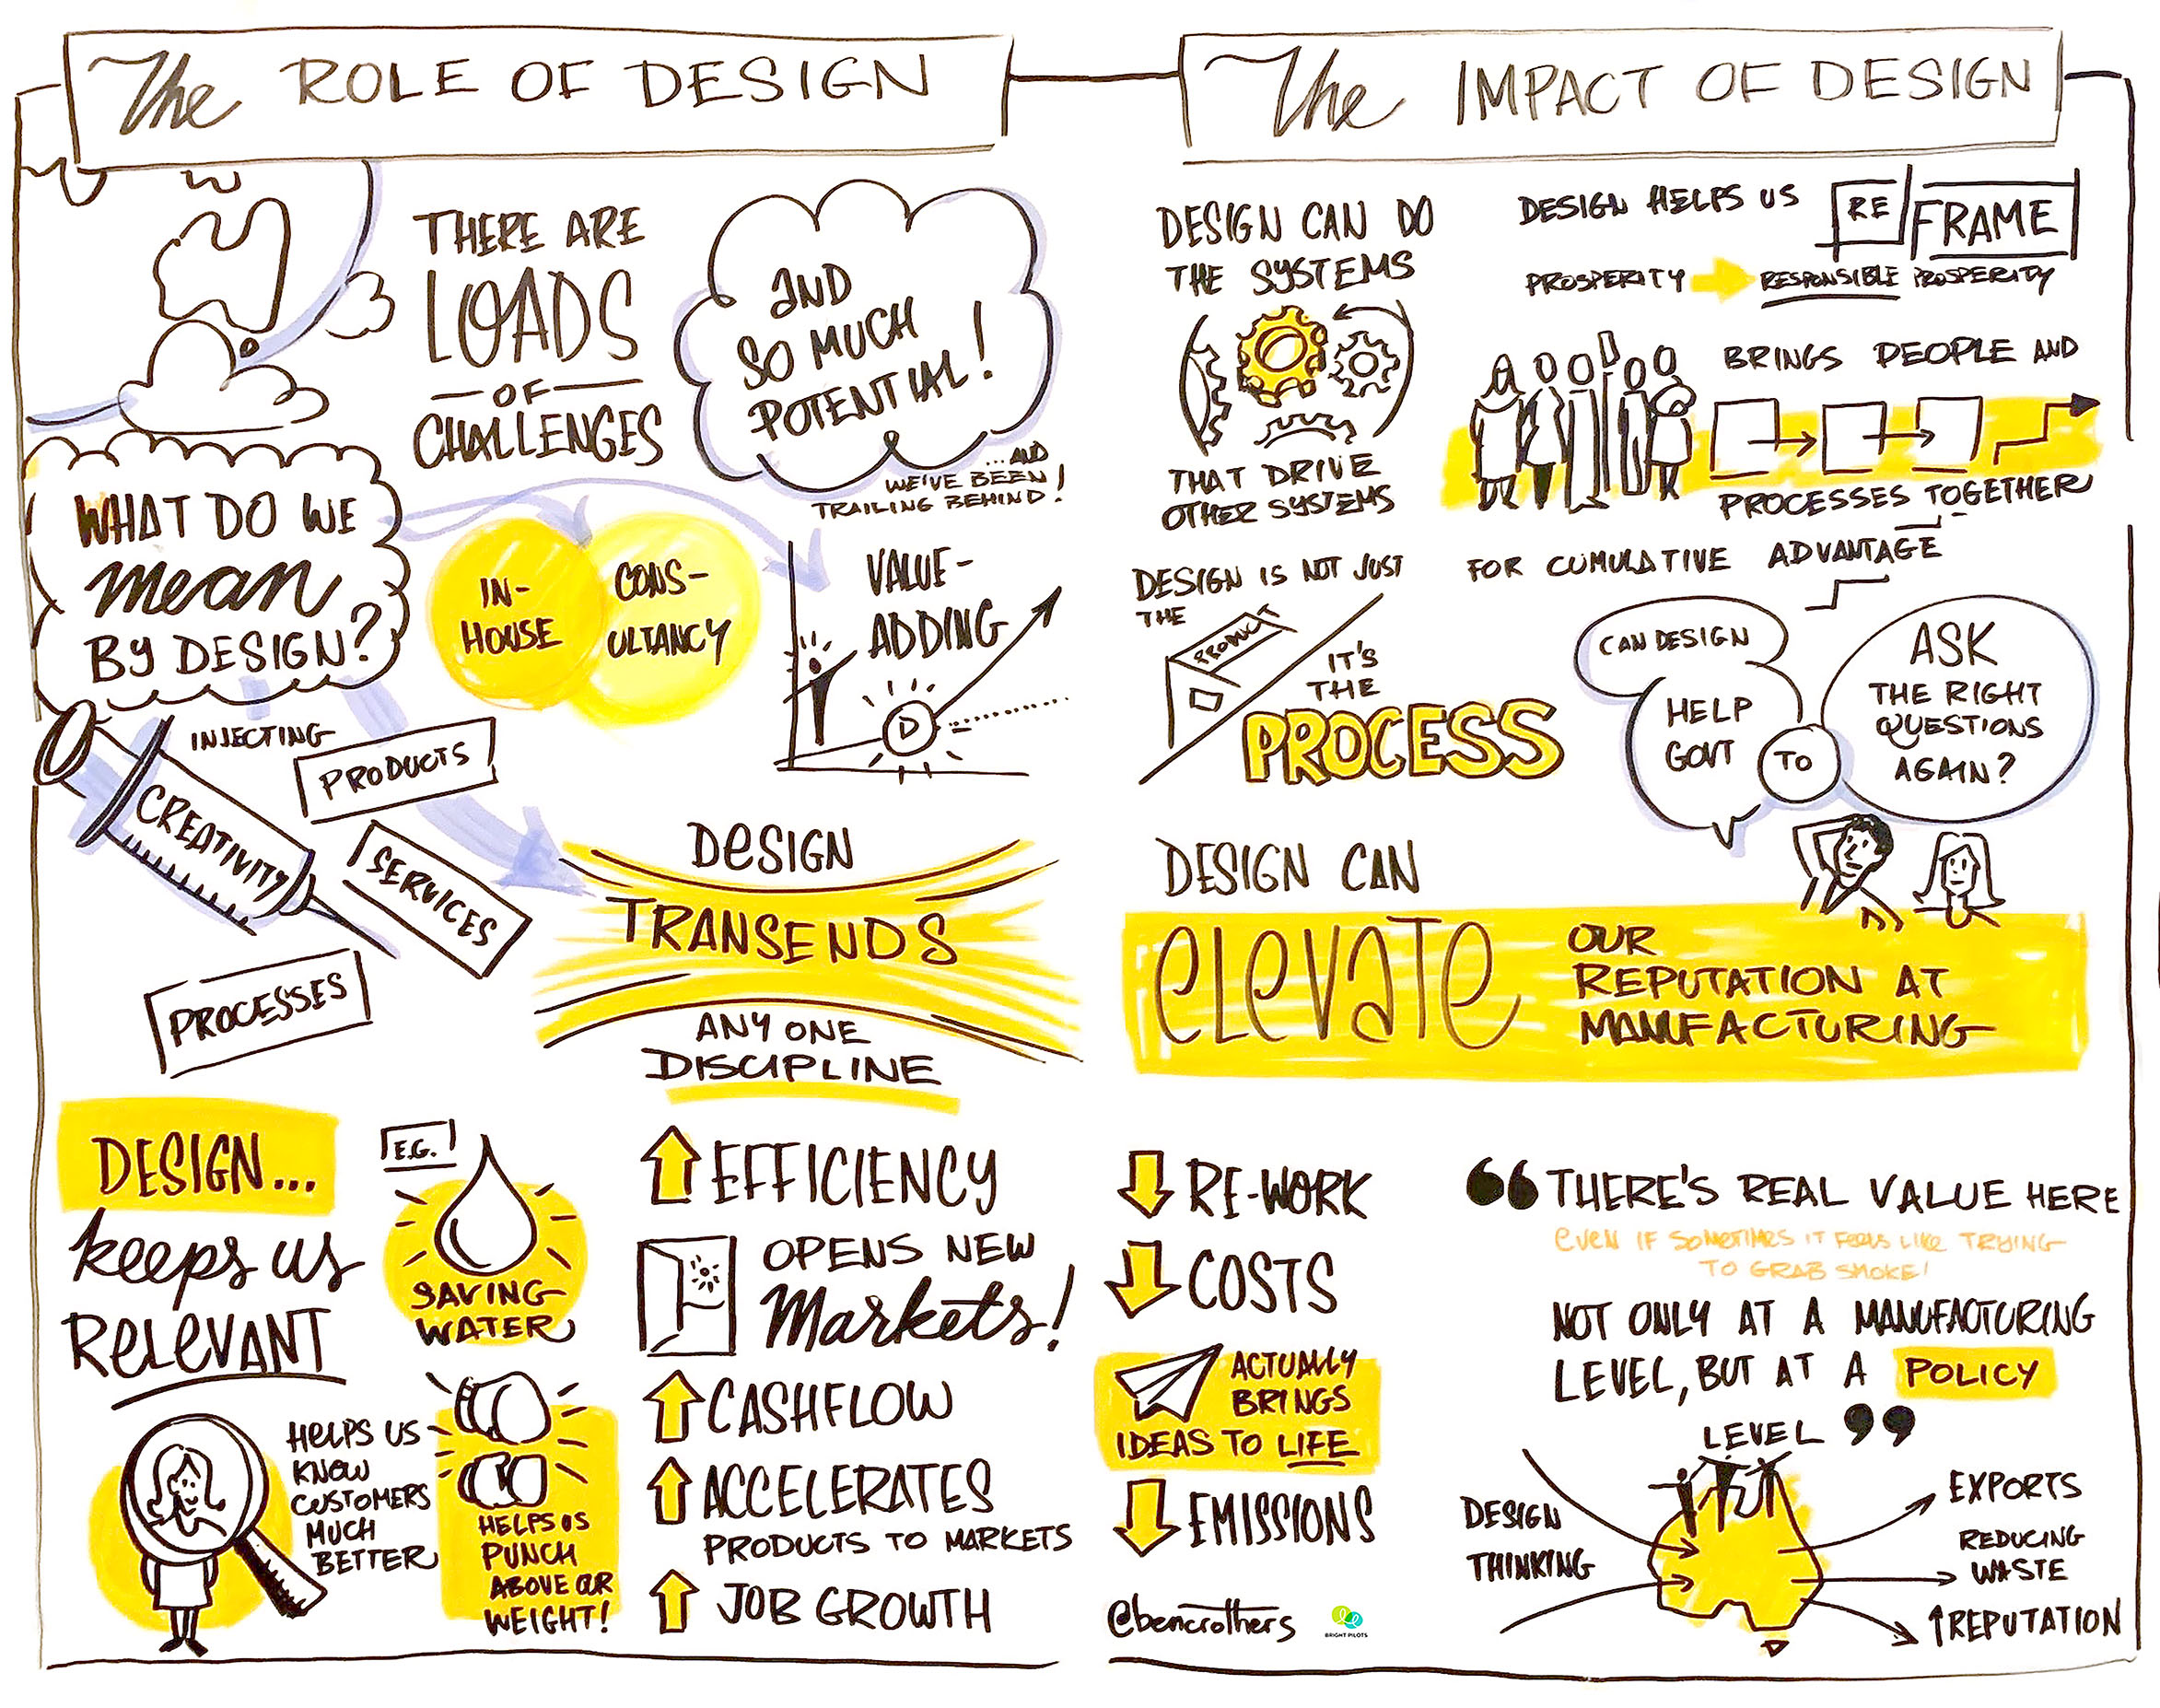 The ROLE OF DESIGN
THERE ARE
LOADS
OF
CHALLENGES
AND
SO MUCH
POTENTIAL!
...AND
WE'VE BEEN
TRAILING BEHIND!
WHAT DO WE
mean
BY DESIGN?
IN-
HOUSE
CONS-
ULTANCY
VALUE-
ADDING
D
INJECTING
CREATIVITY
PRODUCTS
SERVICES
PROCESSES
DESIGN
TRANSENDS
ANY ONE
DISCIPLINE
DESIGN...
keeps us
RELEVANT
E.G.
SAVING
WATER
HELPS US
KNOW
CUSTOMERS
MUCH
BETTER
HELPS US
PUNCH
ABOVE OUR
WEIGHT!
EFFICIENCY
OPENS NEW
Markets!
CASHFLOW
ACCELERATES
PRODUCTS TO MARKETS
JOB GROWTH
The IMPACT OF DESIGN
DESIGN CAN DO
THE SYSTEMS
THAT DRIVE
OTHER SYSTEMS
DESIGN HELPS US RE FRAME
PROSPERITY RESPONSIBLE PROSPERITY
BRINGS PEOPLE AND
PROCESSES TOGETHER
FOR CUMULATIVE ADVANTAGE
DESIGN IS NOT JUST
THE
PRODUCT
IT'S
THE
PROCESS
CAN DESIGN
HELP
GOVT
TO
ASK
THE RIGHT
QUESTIONS
AGAIN?
DESIGN CAN
ELEVATE
OUR
REPUTATION AT
MANUFACTURING
RE-WORK
COSTS
ACTUALLY
BRINGS
IDEAS TO LIFE
EMISSIONS
@bencrothers
BRIGHT PILOTS
“THERE'S REAL VALUE HERE
EVEN IF SOMETIMES IT FEELS LIKE TRYING
TO GRAB SMOKE!
NOT ONLY AT A MANUFACTURING
LEVEL, BUT AT A POLICY
LEVEL”
DESIGN
THINKING
EXPORTS
REDUCING
WASTE
↑REPUTATION